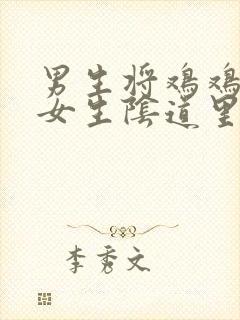 男生将鸡鸡
女生陰道里
李秀文